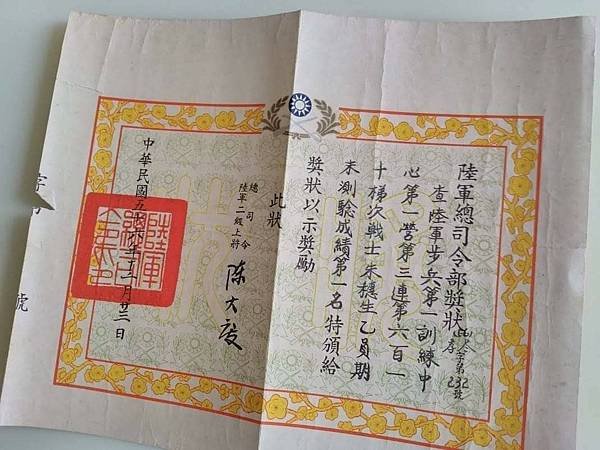 陸軍總司令部獎狀
人字第232號
查陸軍步兵第一訓練中
心第一營第三連第六百一
十梯次戰士朱穩生乙員期
末測驗成績第一名特頒給
獎狀以示獎勵
此狀
總司令
陸軍二級上將
陳大慶
中華民國五十六年十一月廿三日
號